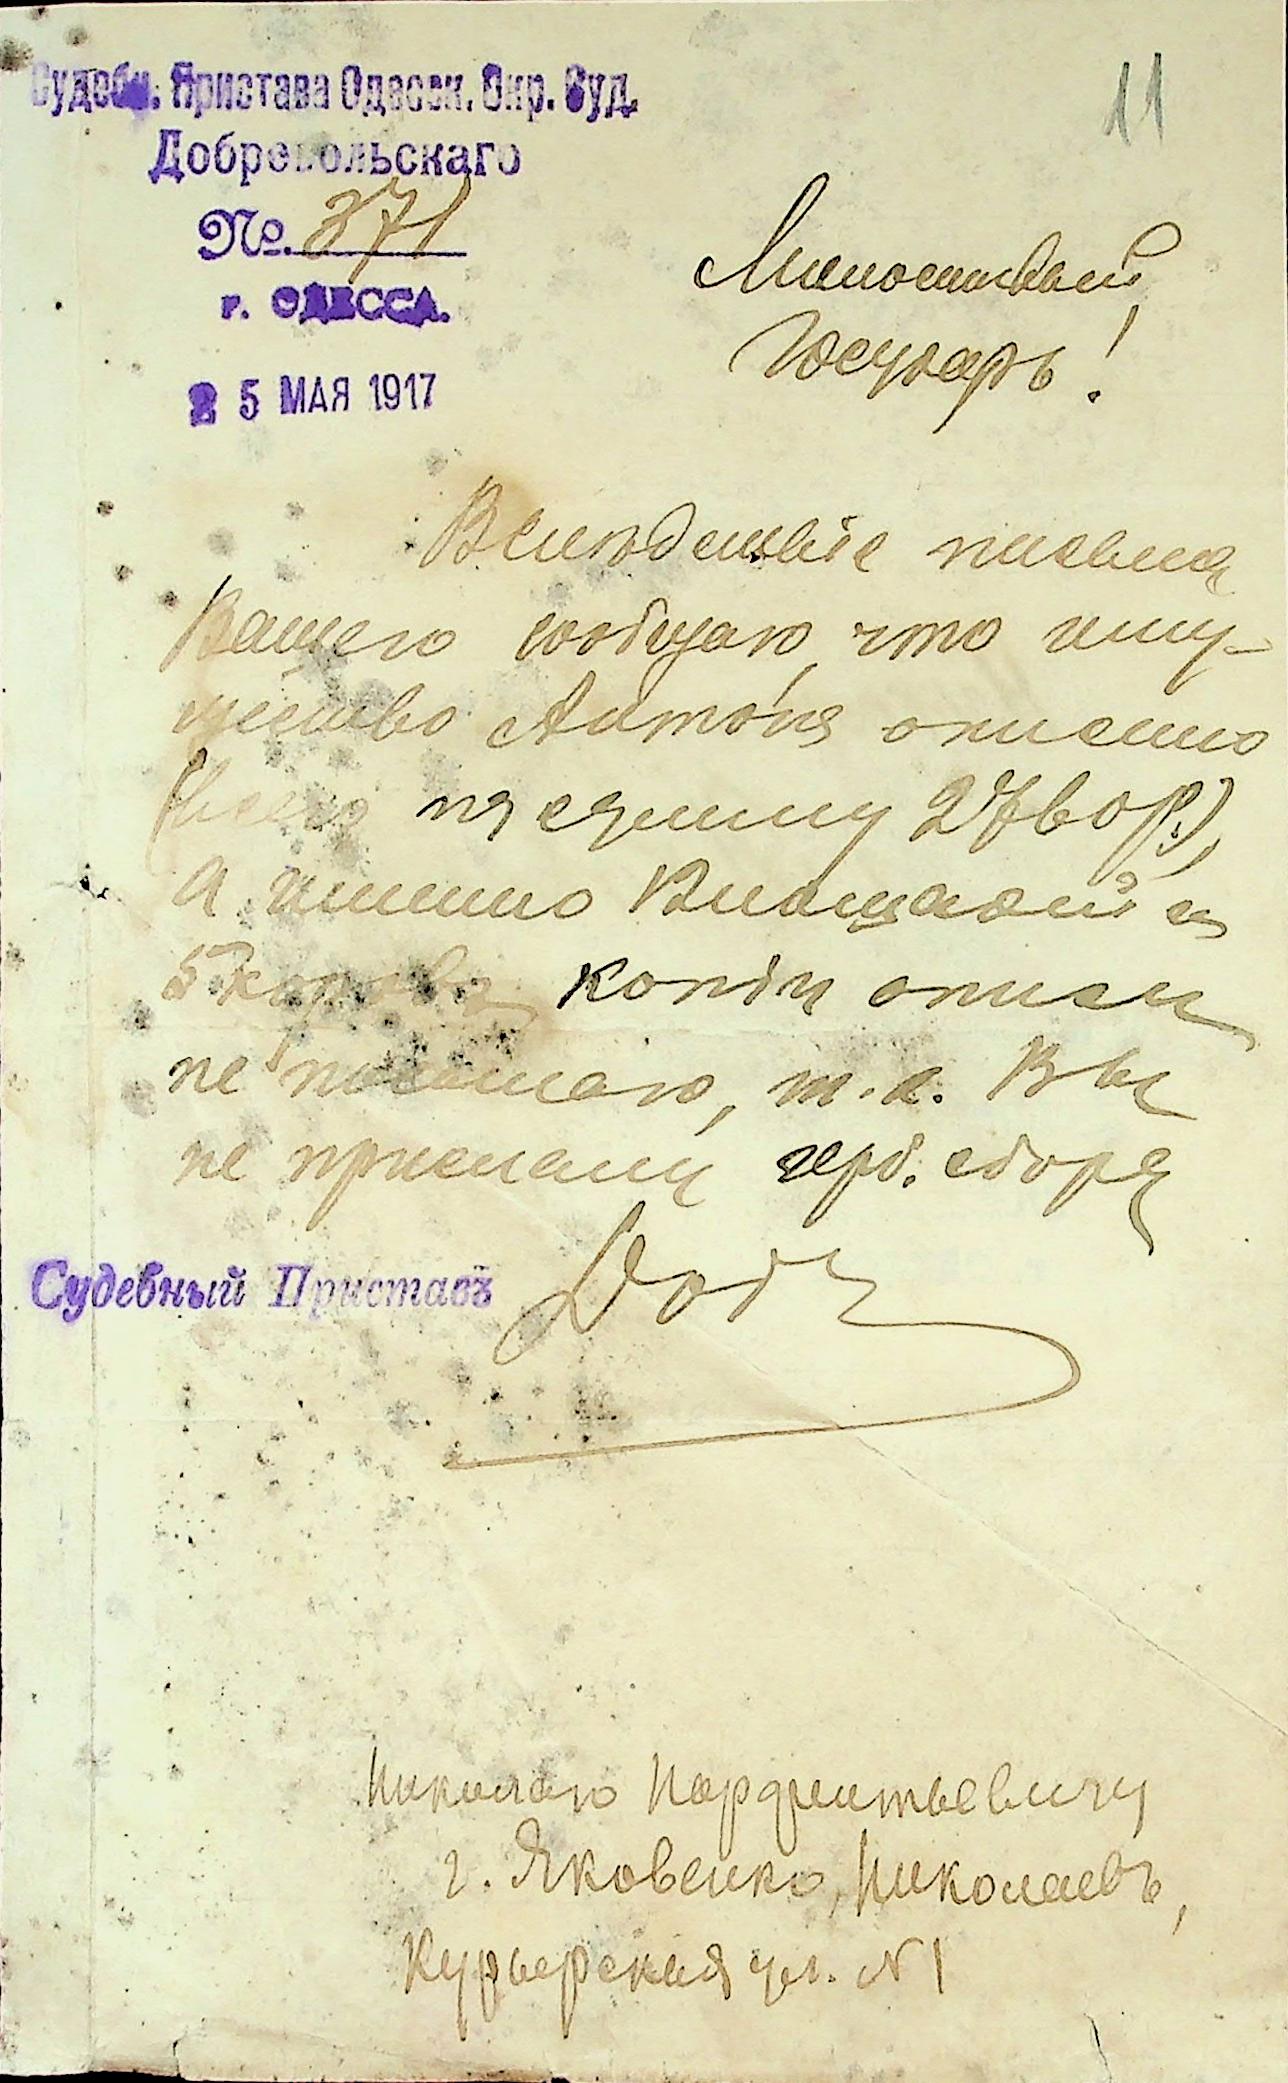 Судебн. Пристава Одесск. Окр. Суд.
Добровольскаго
11
№. 371
г. ОДЕССА.
25 МАЯ 1917
Милостивый
Государь!
Вслѣдствіе письма
Вашего сообщаю, что иму-
щество описано
(всего на сумму
а именно и
5 коровъ, копіи описи
не посылаю, т. к. Вы
не прислали герб. сбора
Судебный Приставъ Доб
Николаю Парфентьевичу
г. Яковенко, Николаевъ,
Курьерская ул. N 1